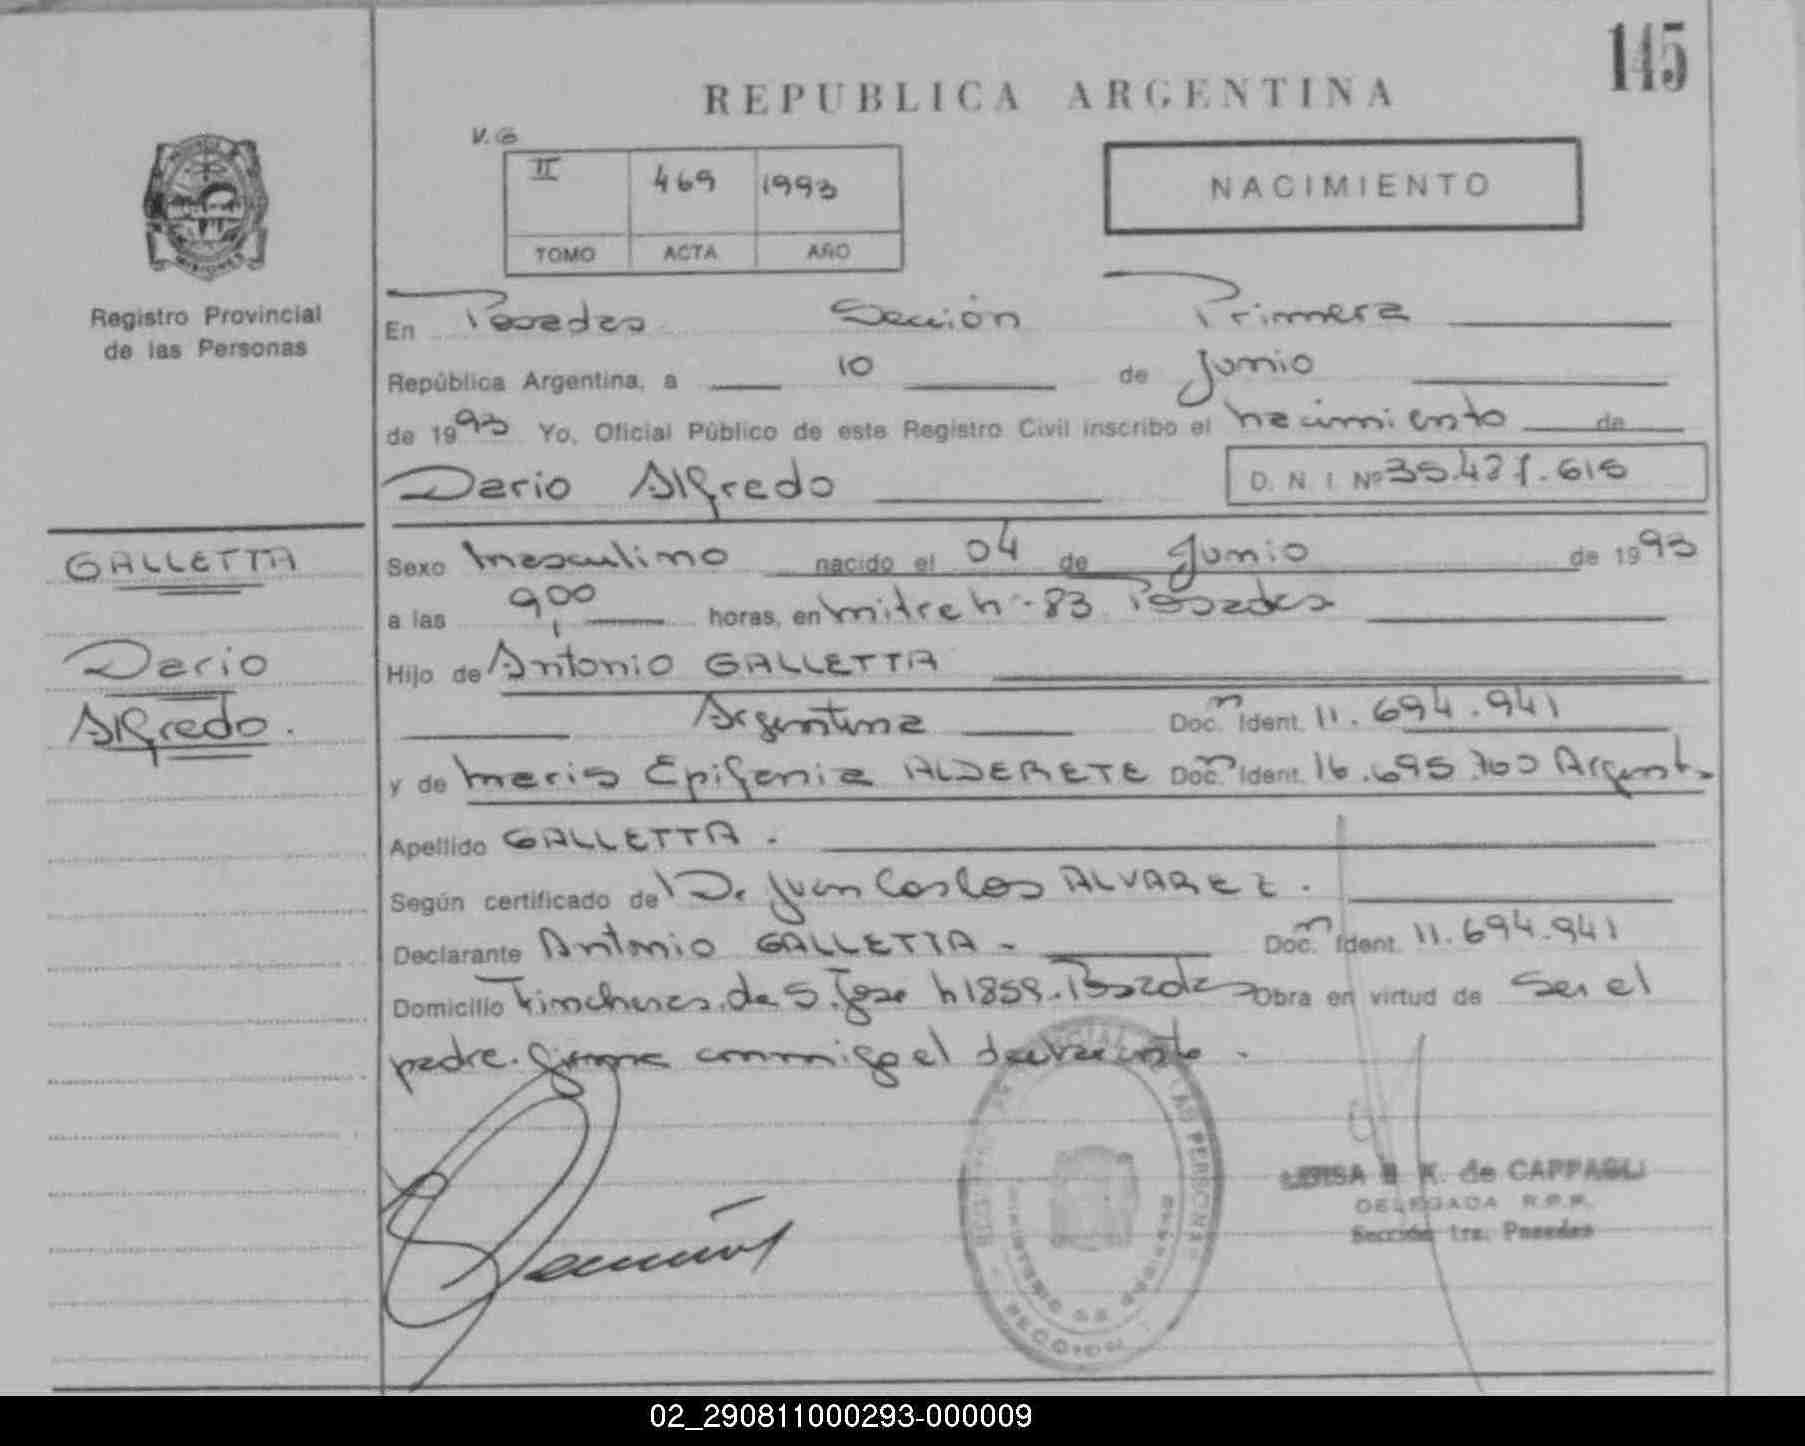 145
REPUBLICA ARGENTINA
V.G
II 469 1993
TOMO ACTA AÑO
NACIMIENTO
MISIONES
Registro Provincial
de las Personas
En Posadas Sección Primera
República Argentina, a 10 de Junio
de 1993 Yo, Oficial Público de este Registro Civil inscribo el nacimiento de
Dario Alfredo D. N. I. Nº 35.427.615
GALLETTA
Dario
Alfredo.
Sexo masculino nacido el 04 de Junio de 1993
a las 9,00 horas, en mitre n - 83 Posadas
Hijo de Antonio GALLETTA
Argentina Doc. Ident. 11.694.941
y de maria Epifania ALDERETE Doc. Ident. 16.695.700 Argent.
Apellido GALLETTA.
Según certificado de Dr Juan Carlos ALVAREZ.
Declarante Antonio GALLETTA - Doc. Ident. 11.694.941
Domicilio Trincheras de S. Jose n 1859. Posadas Obra en virtud de Ser el
padre. firma conmigo el declarante.
MINISTERIO DE GOBIERNO
K. de CAPPAGLI
DELEGADA R.P.P.
Sección 1ra. Posadas
02_290811000293-000009